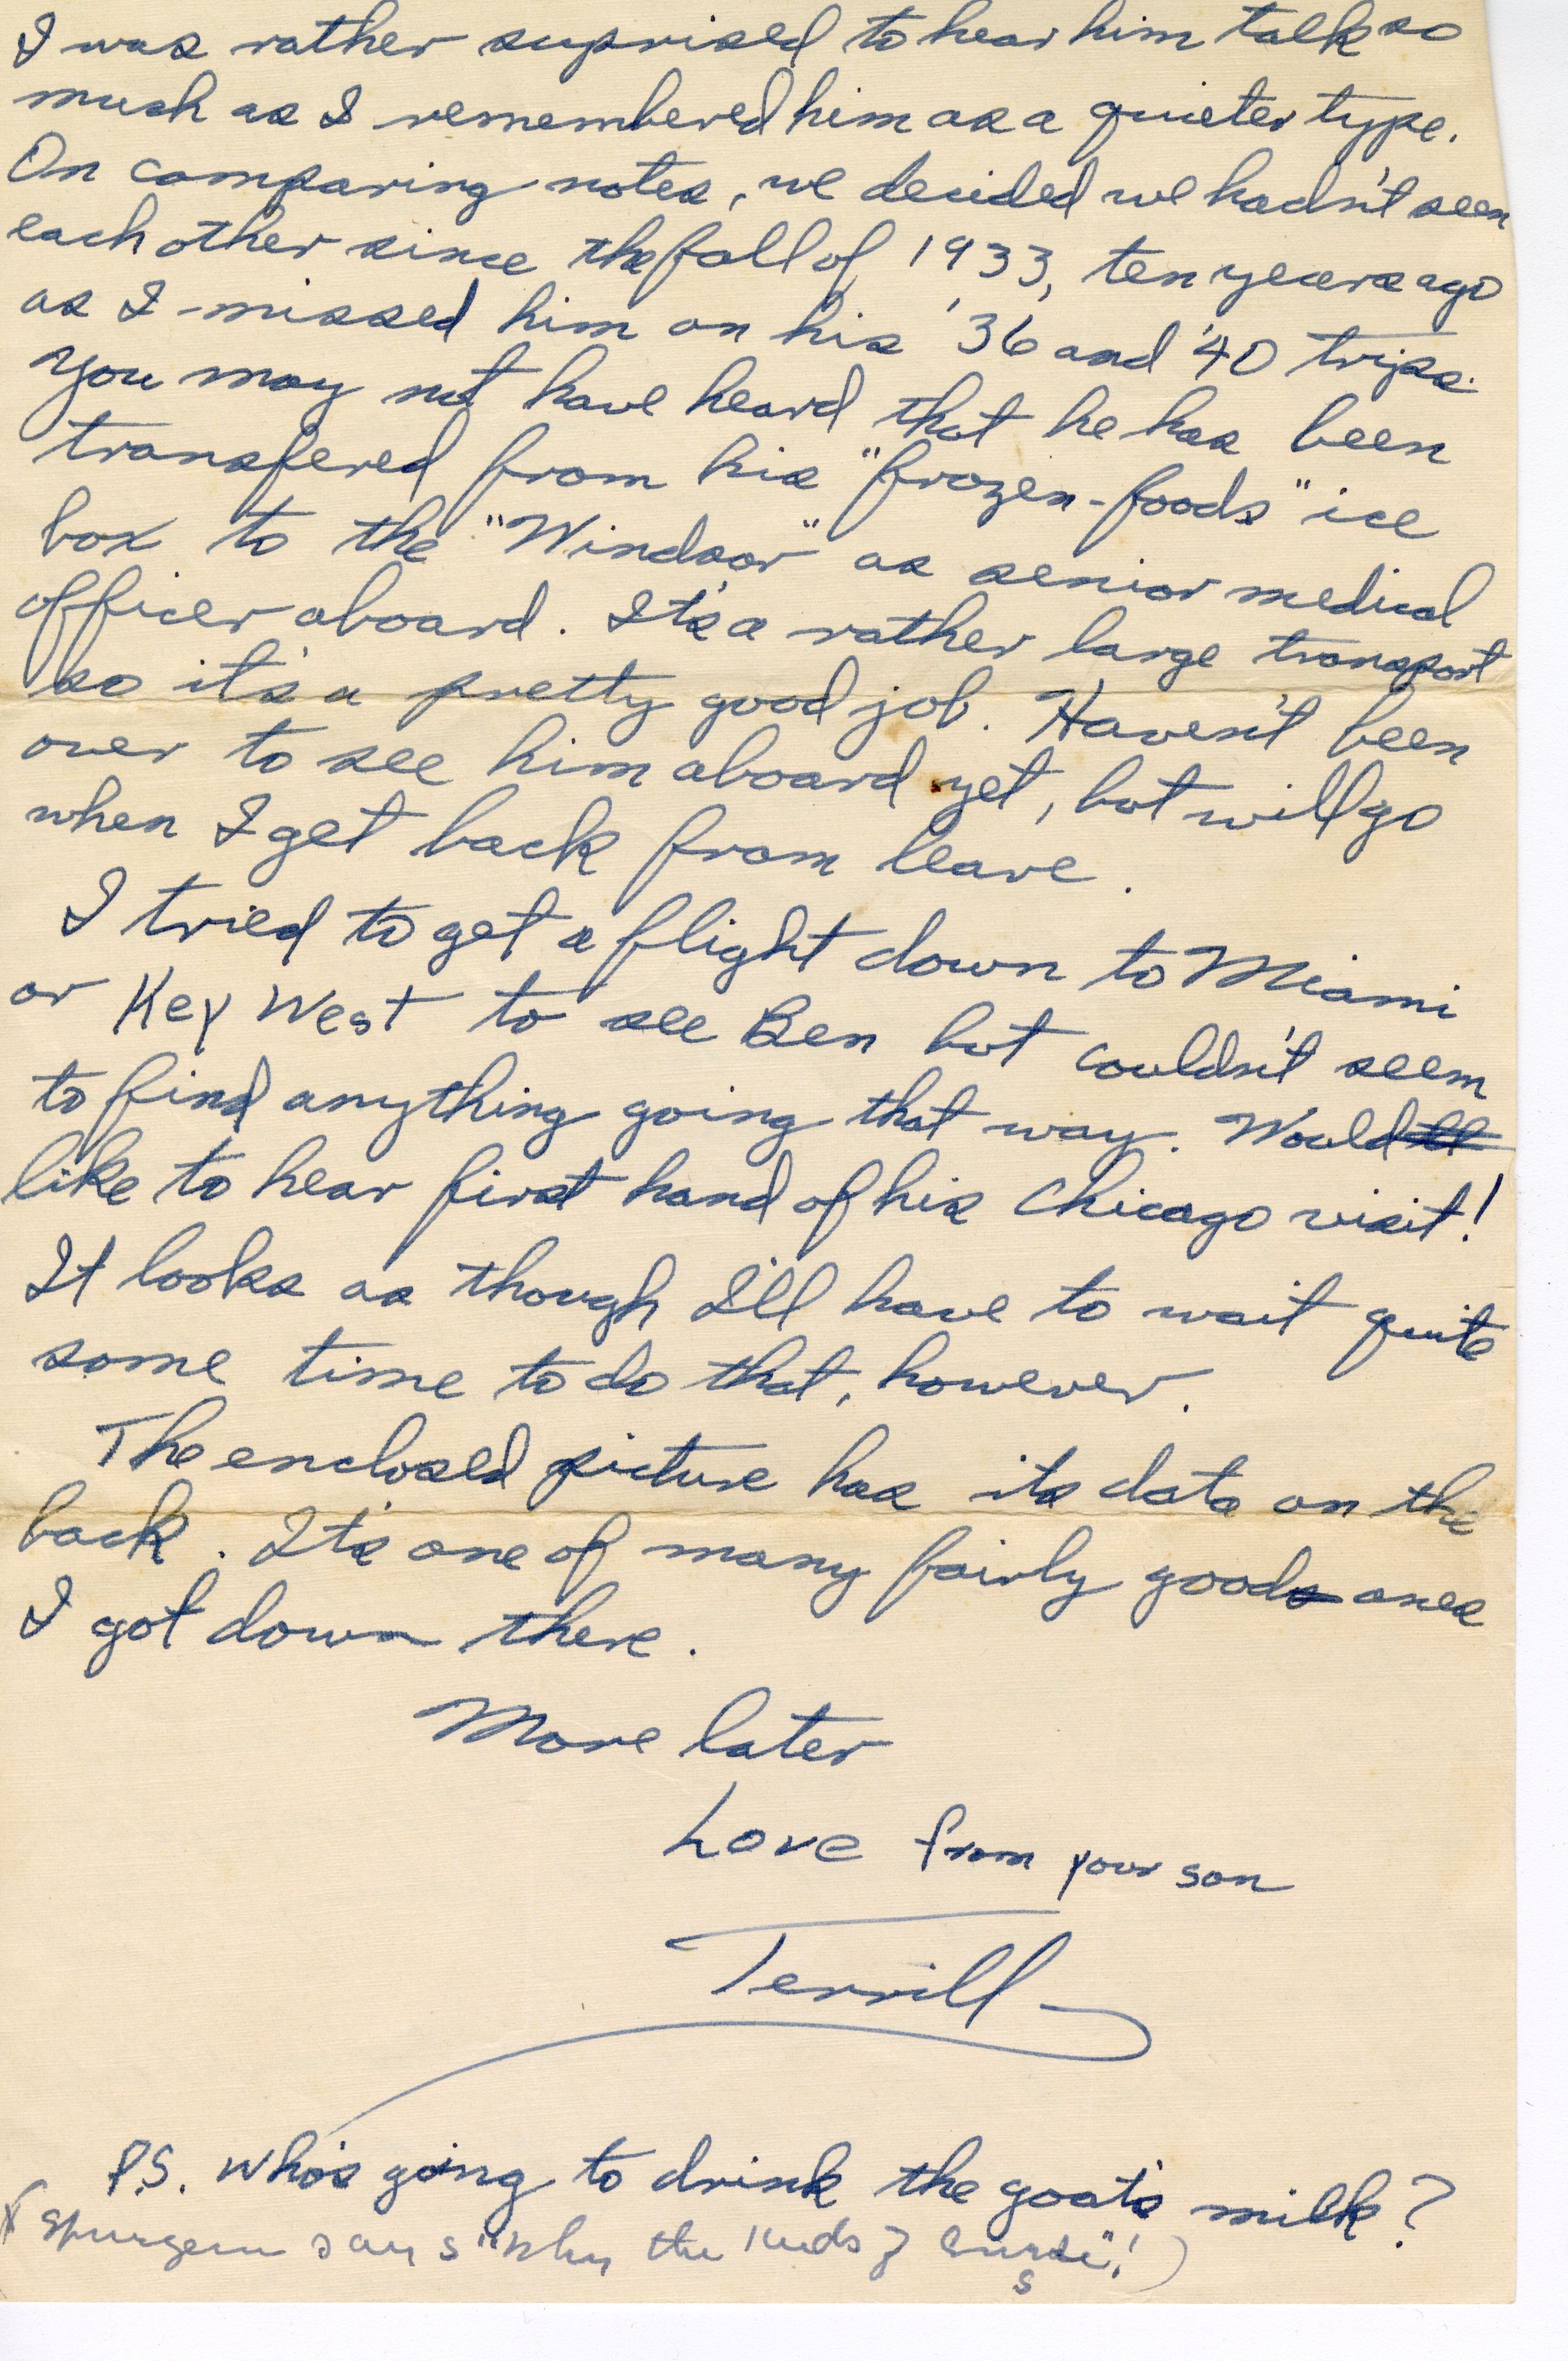 I was rather suprised to hear him talk so
much as I remembered him as a quieter type.
On comparing notes, we decided we hadn't seen
each other since the fall of 1933, ten years ago
as I missed him on his '36 and '40 trips.
You may not have heard that he has been
transfered from his "frozen-foods" ice
box to the "Windsor" as senior medical
officer aboard. It's a rather large transport
so it's a pretty good job. Haven't been
over to see him aboard yet, but will go
when I get back from leave.
I tried to get a flight down to Miami
or Key West to see Ben but couldn't seem
to find anything going that way. Would
like to hear first hand of his Chicago visit!
It looks as though I'll have to wait quite
some time to do that, however.
The enclosed picture has its data on the
back. It's one of many fairly good ones
I got down there.
More later
Love from your son
Terrill
P.S. Who's going to drink the goat's milk?
(Spurgeon says "Why the kids of